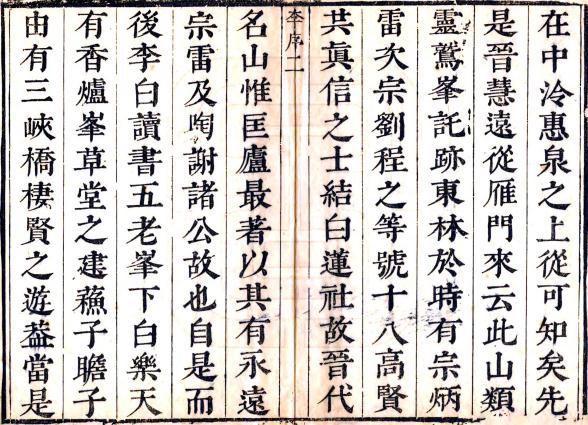 在中泠惠泉之上從可知矣先
是晉慧遠從雁門來云此山類
靈鷲峯託跡東林於時有宗炳
雷次宗劉程之等號十八高賢
共眞信之士結白蓮社故晉代
李序二
名山惟匡廬最著以其有永遠
宗雷及陶謝諸公故也自是而
後李白讀書五老峯下白樂天
有香爐峯草堂之建蘓子瞻子
由有三峽橋棲賢之遊葢當是